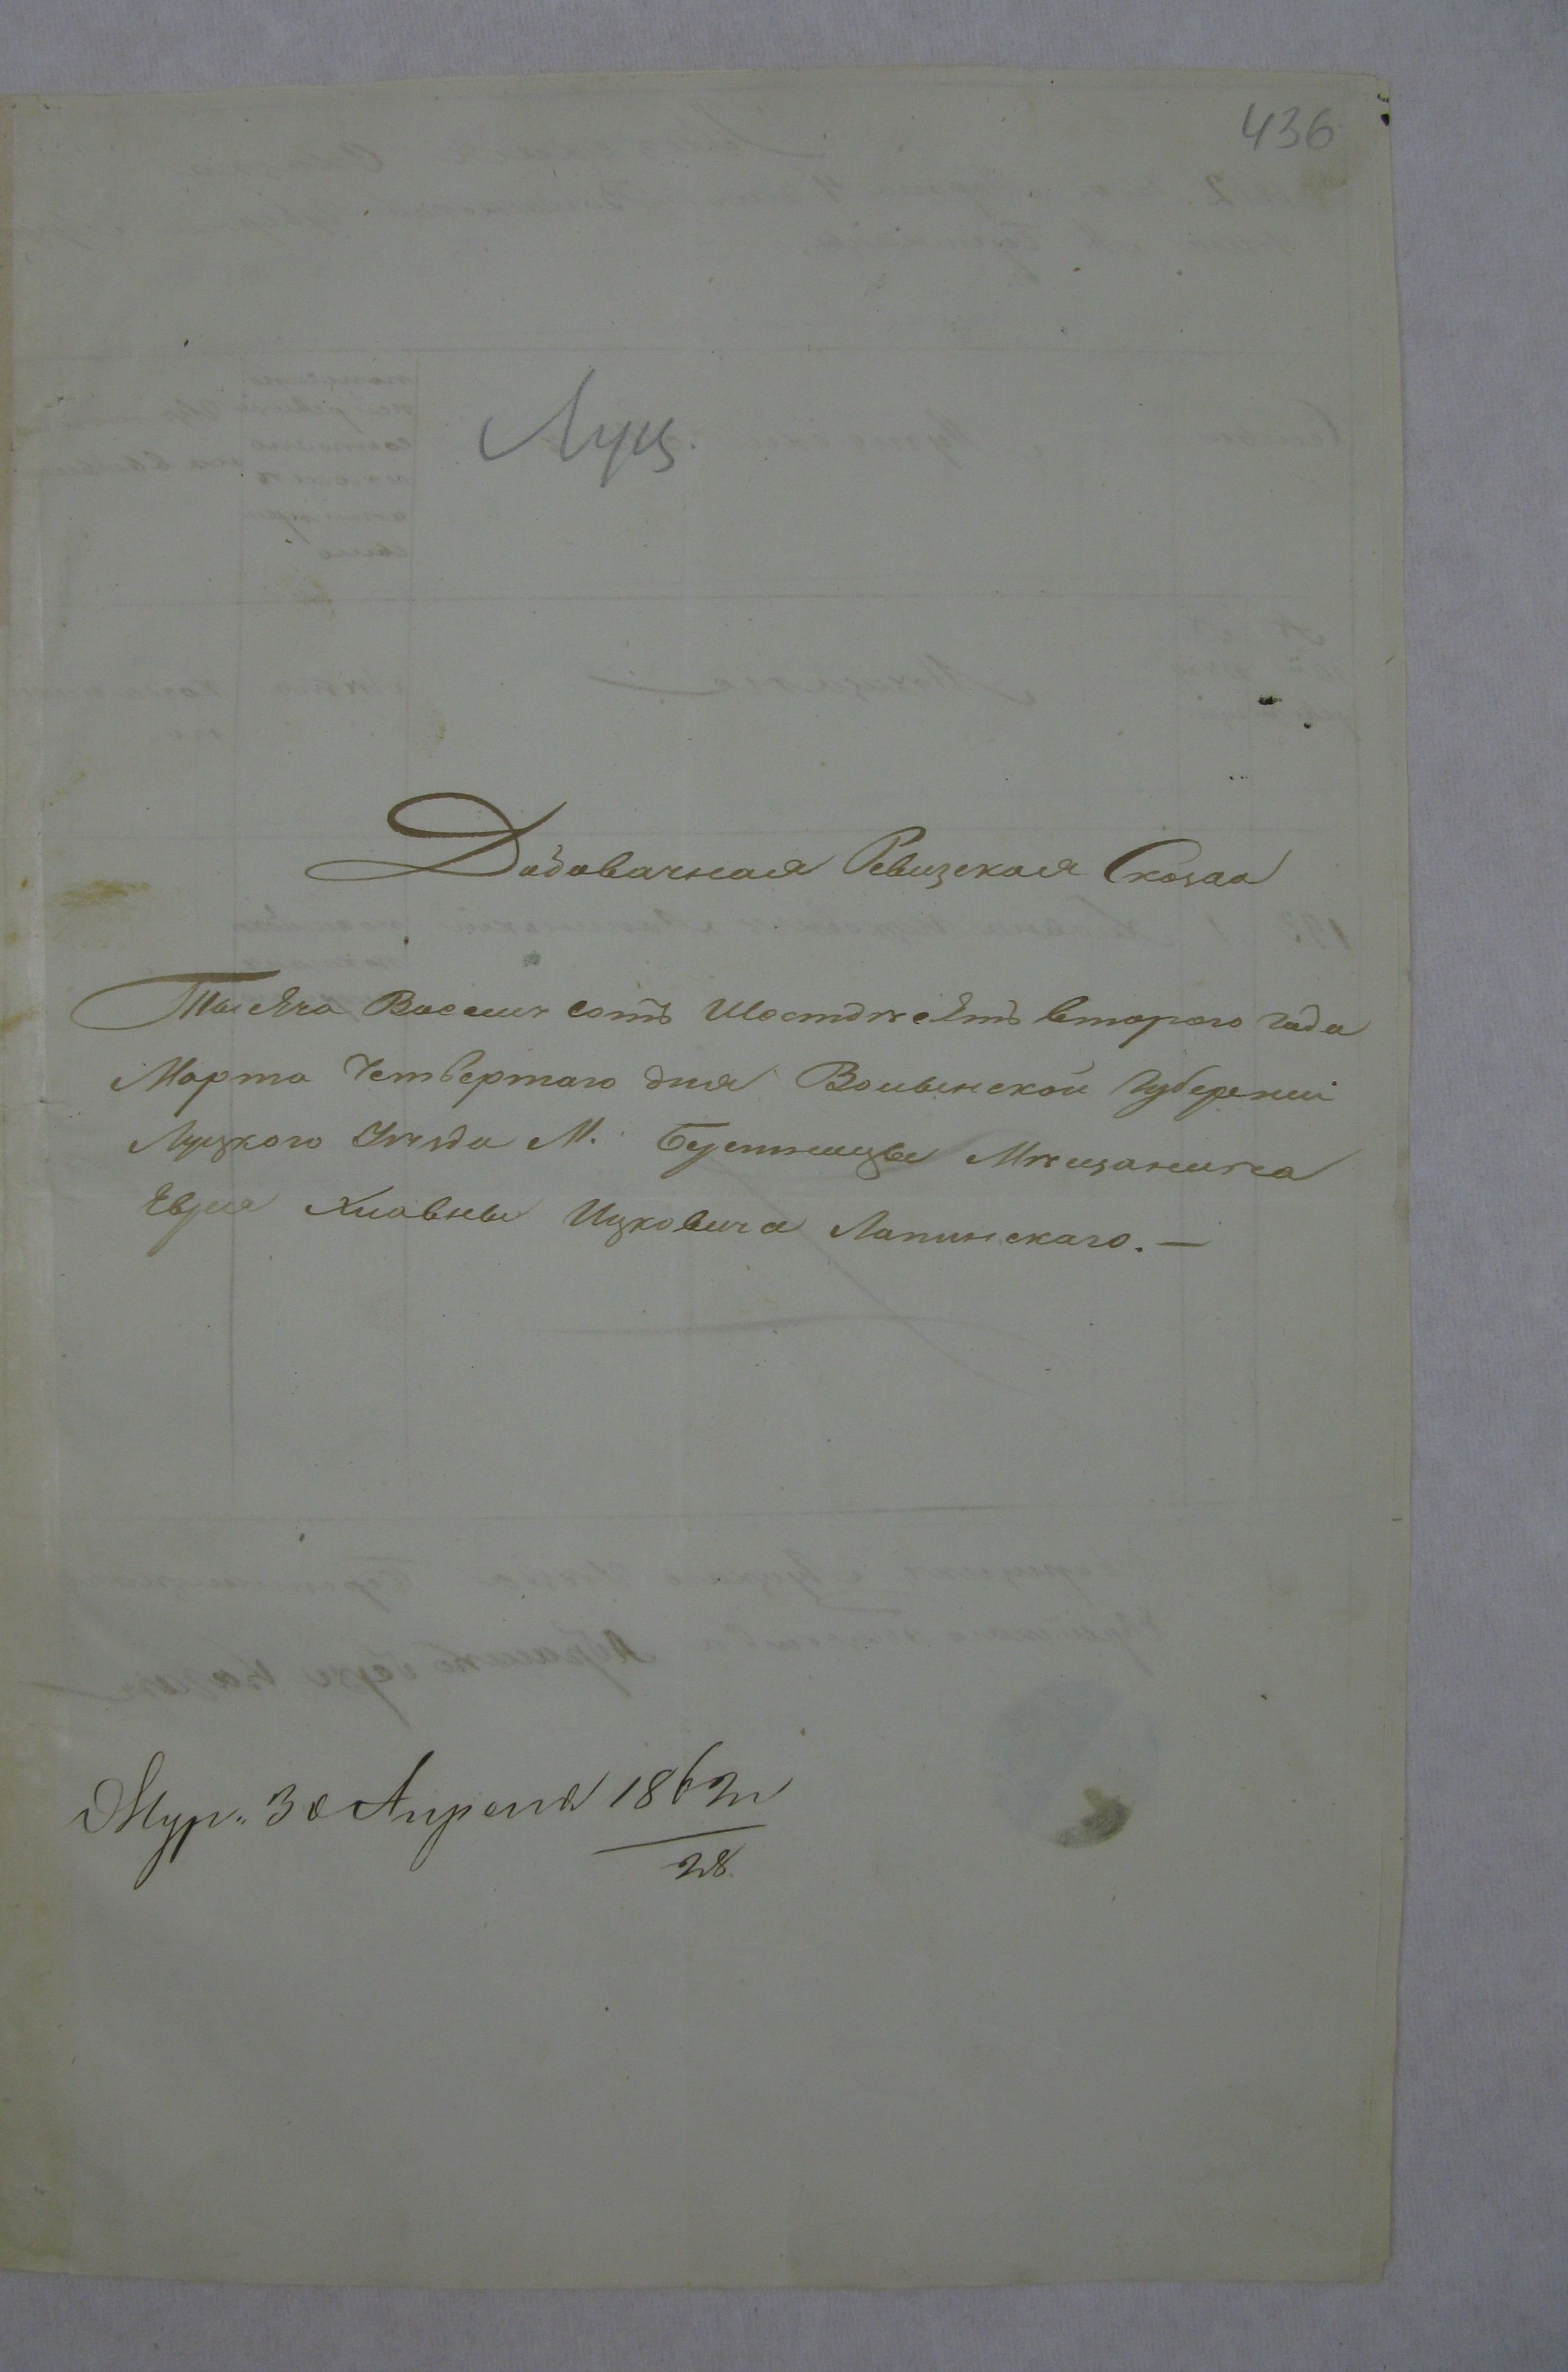 436
Луц.
Дабавачная Ревизская Сказка
Тысяча Восемь сотъ Шостдѣсятъ втораго года
Марта Четвертаго дня Волынской Губерніи
Луцкого Уѣзда М. Берестицы Мѣщанина
Еврея Хиавны Ицковича Лапинскаго. —
Жур. 30 Апреля 1862 г
28